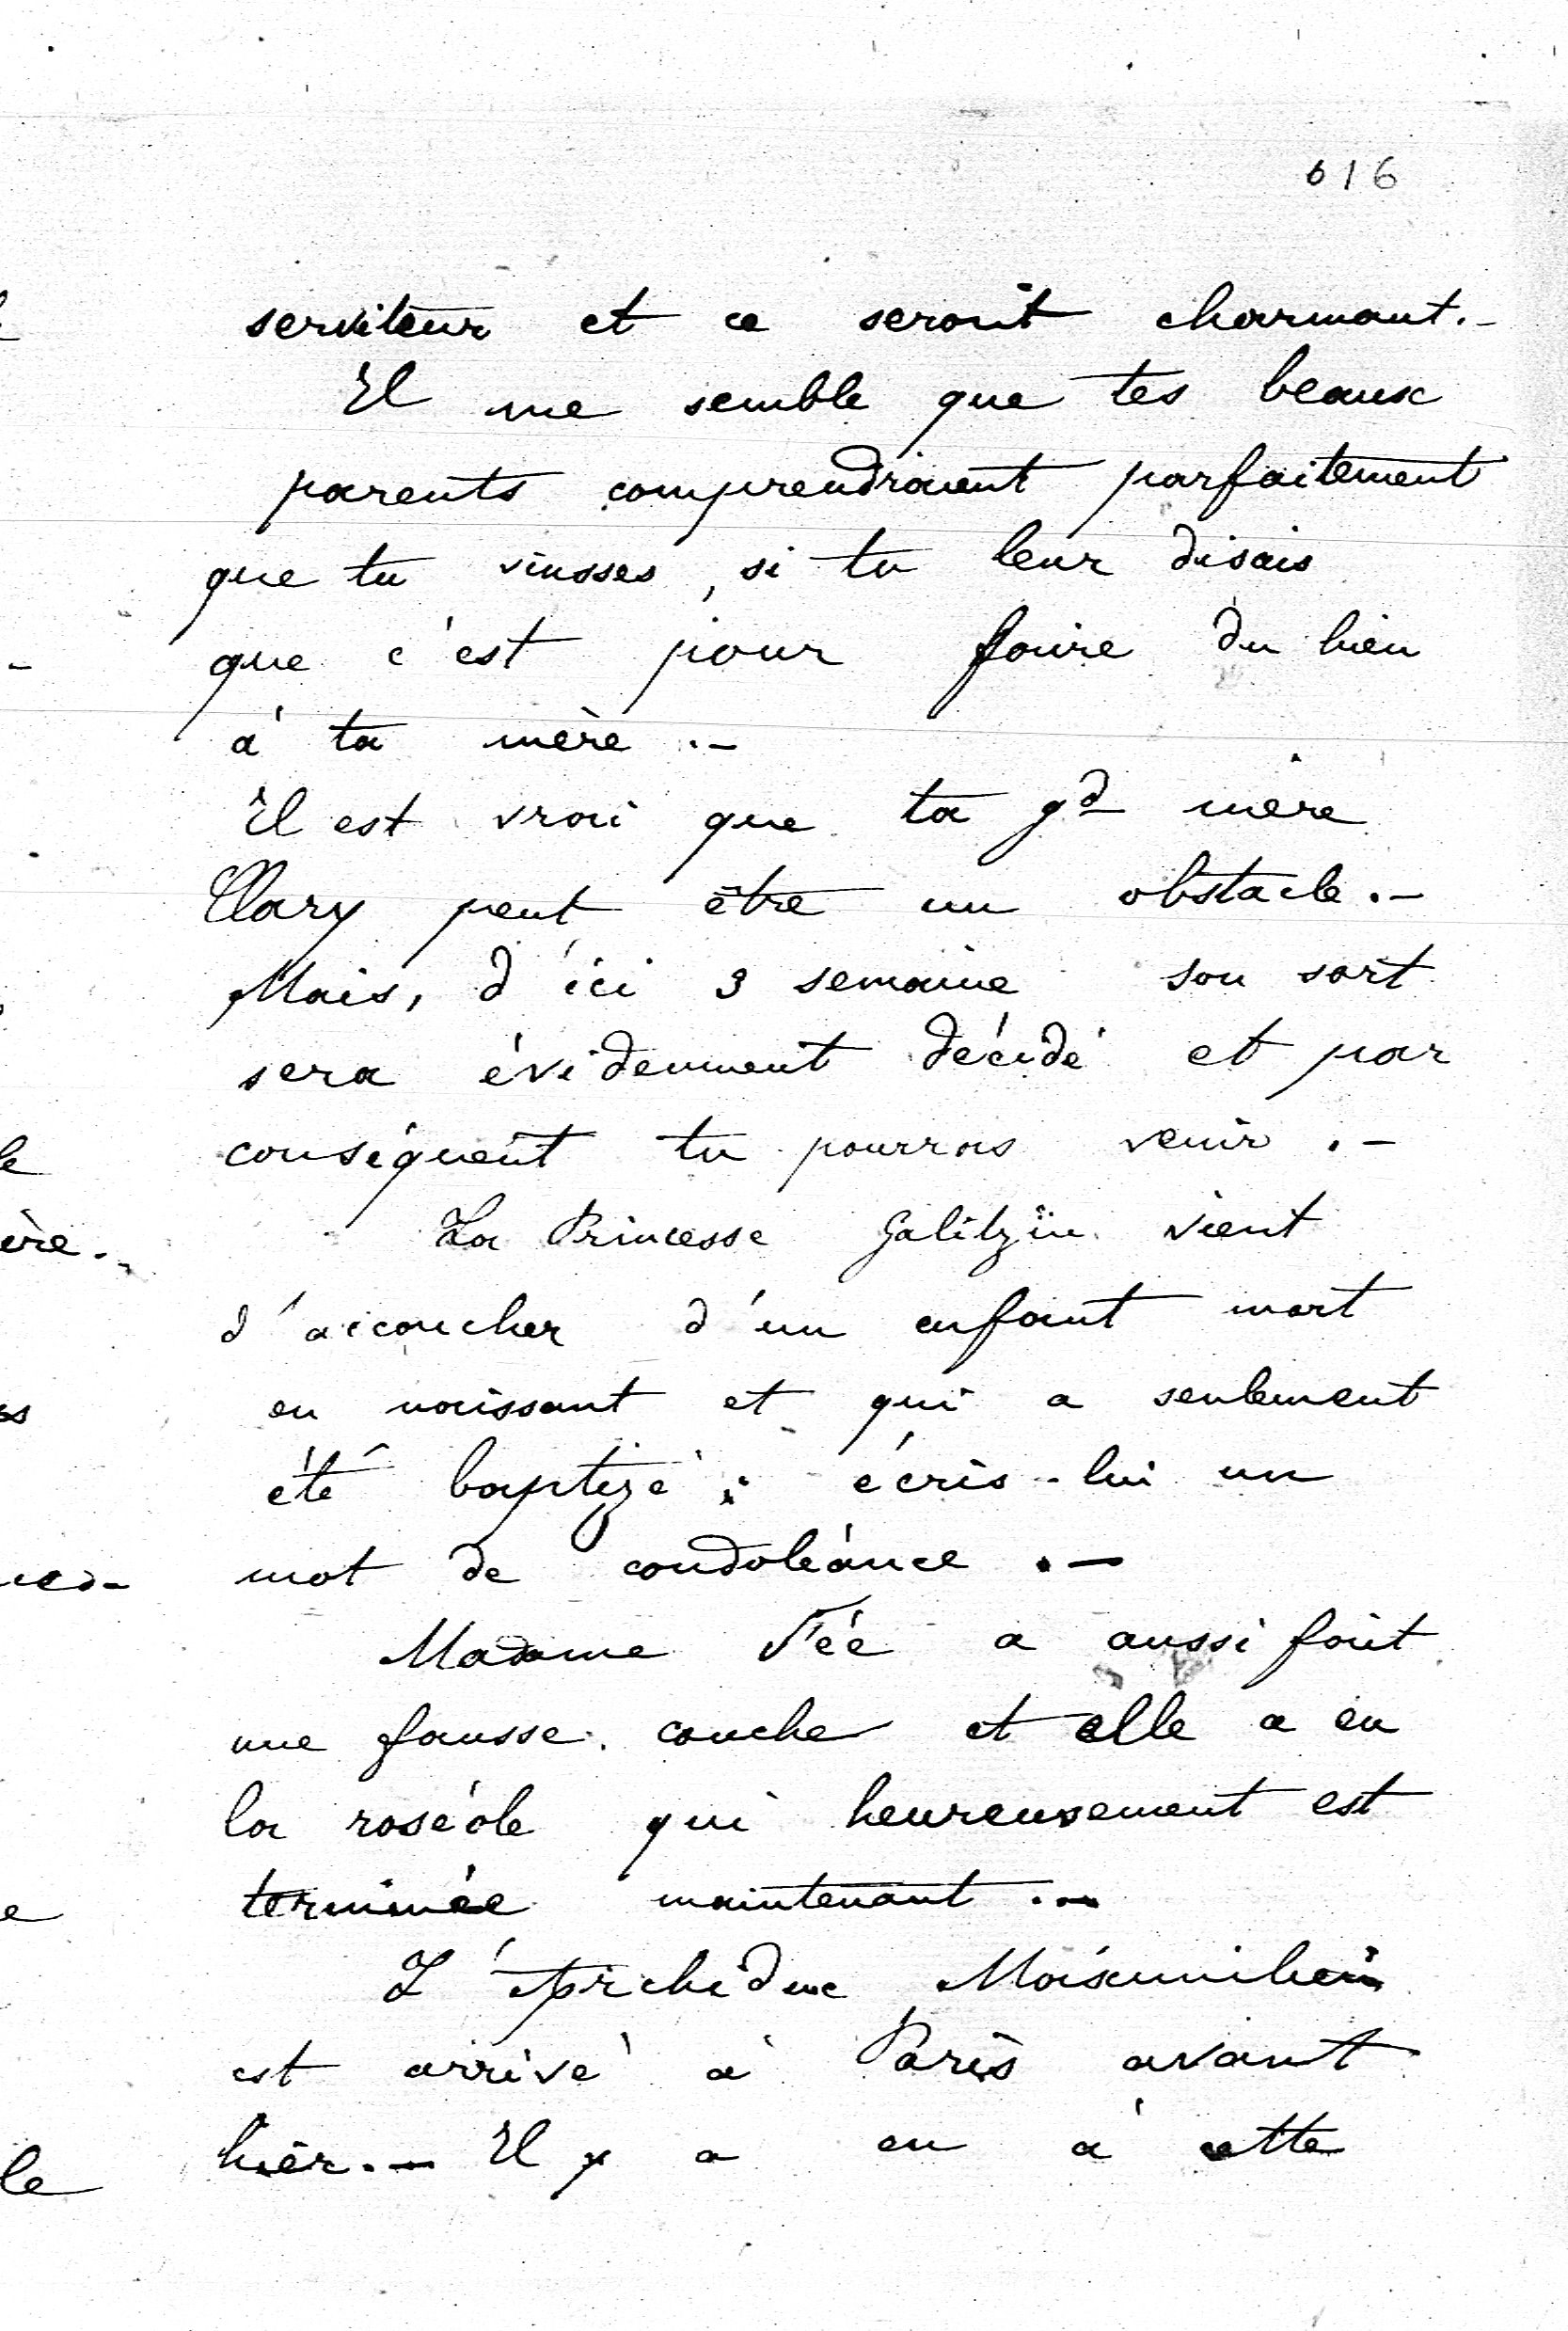 616
serviteur et ce serait charmant.-
Il me semble que tes beaux
parents comprendraient parfaitement
que tu vinsses, si tu leur disais
que c'est pour faire du bien
à ta mère.-
Il est vrai que ta gd mère
Clary peut être un obstacle.-
Mais, d'ici 3 semaine son sort
sera évidemment décidé et par
conséquent tu pourras venir.-
La Princesse Galitzïn vient
d'accoucher d'un enfant mort
en naissant et qui a seulement
été baptizé ; écris-lui un
mot de condoléance.-
Madame Fée a aussi fait
une fausse couche et elle a eu
la roséole qui heureusement est
terminée maintenant.-
L'Archiduc Maximilien
est arrivé à Paris avant
hier.- Il y a eu à cette